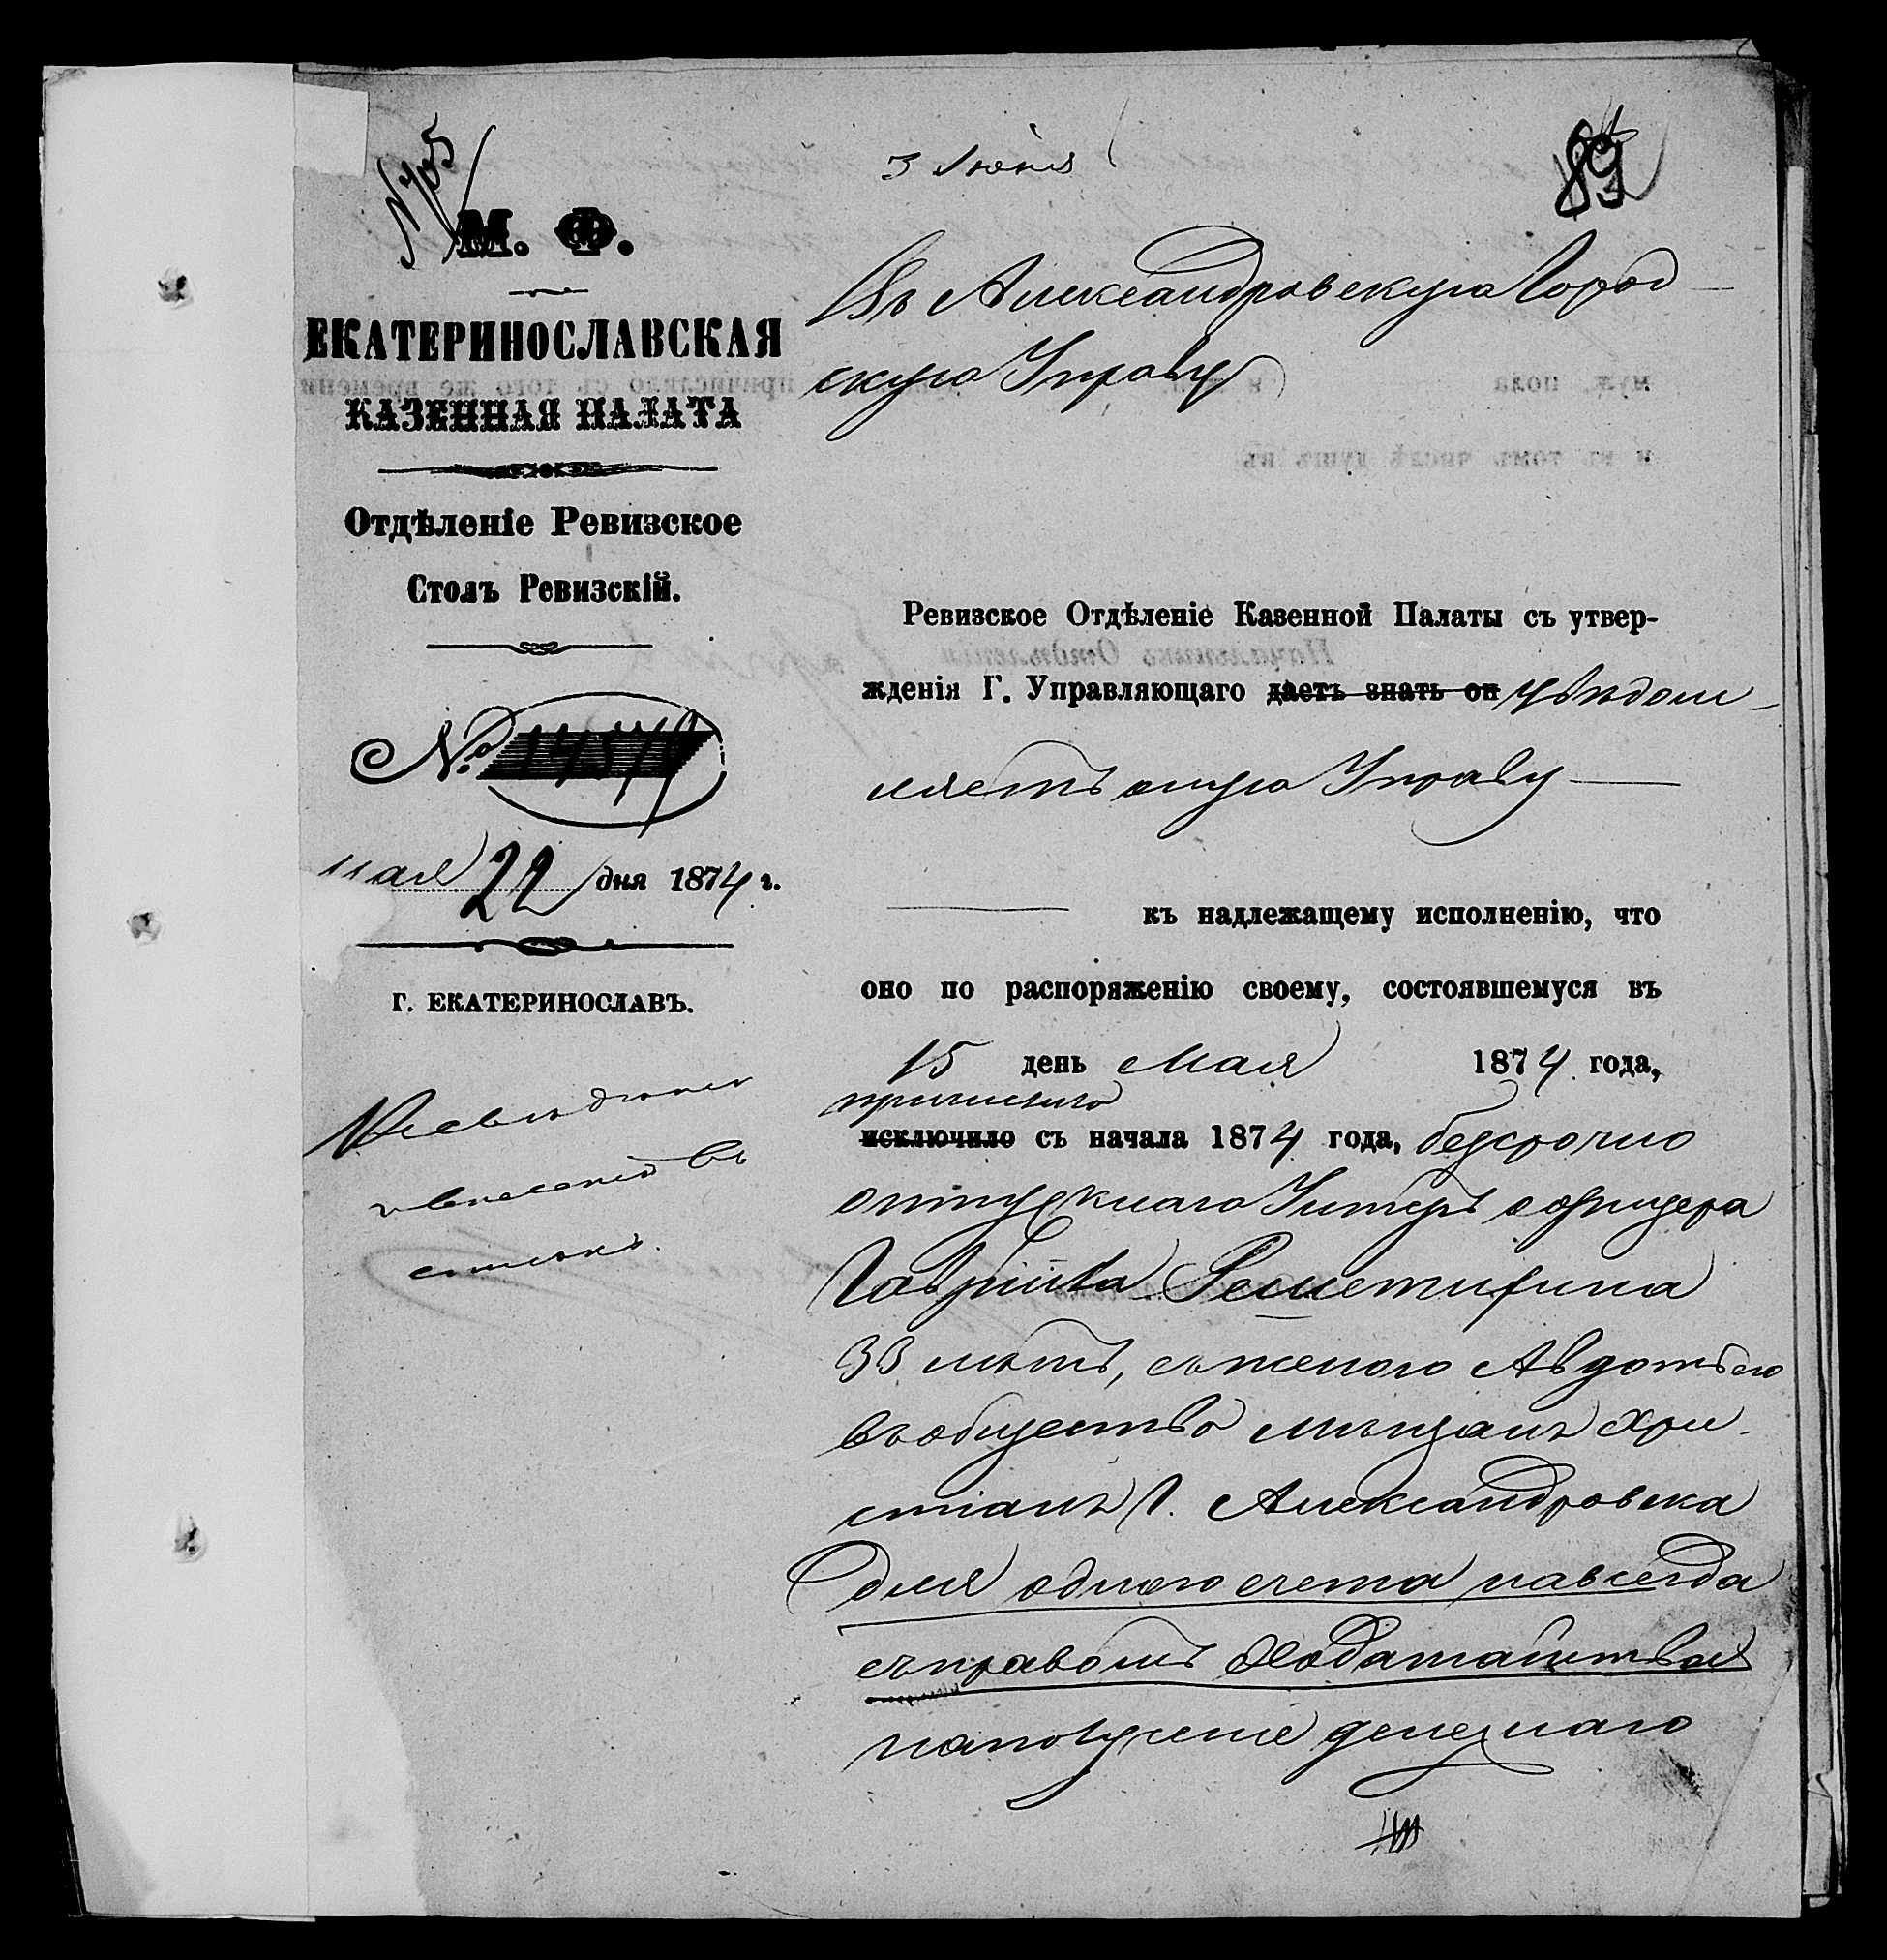 № 705
3 Июня
89
М. Ф.
ЕКАТЕРИНОСЛАВСКАЯ
КАЗЕННАЯ ПАЛАТА
Отдѣленіе Ревизское
Столъ Ревизскій.
№ 14579
мая 22 дня 1874 г.
Г. ЕКАТЕРИНОСЛАВЪ.
внесенію въ
списокъ.
Въ Александровскую Город
скую Управу
Ревизское Отдѣленіе Казенной Палаты съ утвер-
жденія Г. Управляющаго даетъ знать он увѣдом-
ляетъ оную Управу
къ надлежащему исполненію, что
оно по распоряженію своему, состоявшемуся въ
15 день Мая 1874 года,
причислило
исключило съ начала 1874 года, безсрочно
отпускнаго Унтеръ офицера
Гавріила Решетихина
33 лѣтъ, съ женою Авдотьею
въ общество мѣщанъ хри-
стіанъ г. Александровска
для одного счета навсегда
съ правомъ ходатайства
на полученіе денежнаго